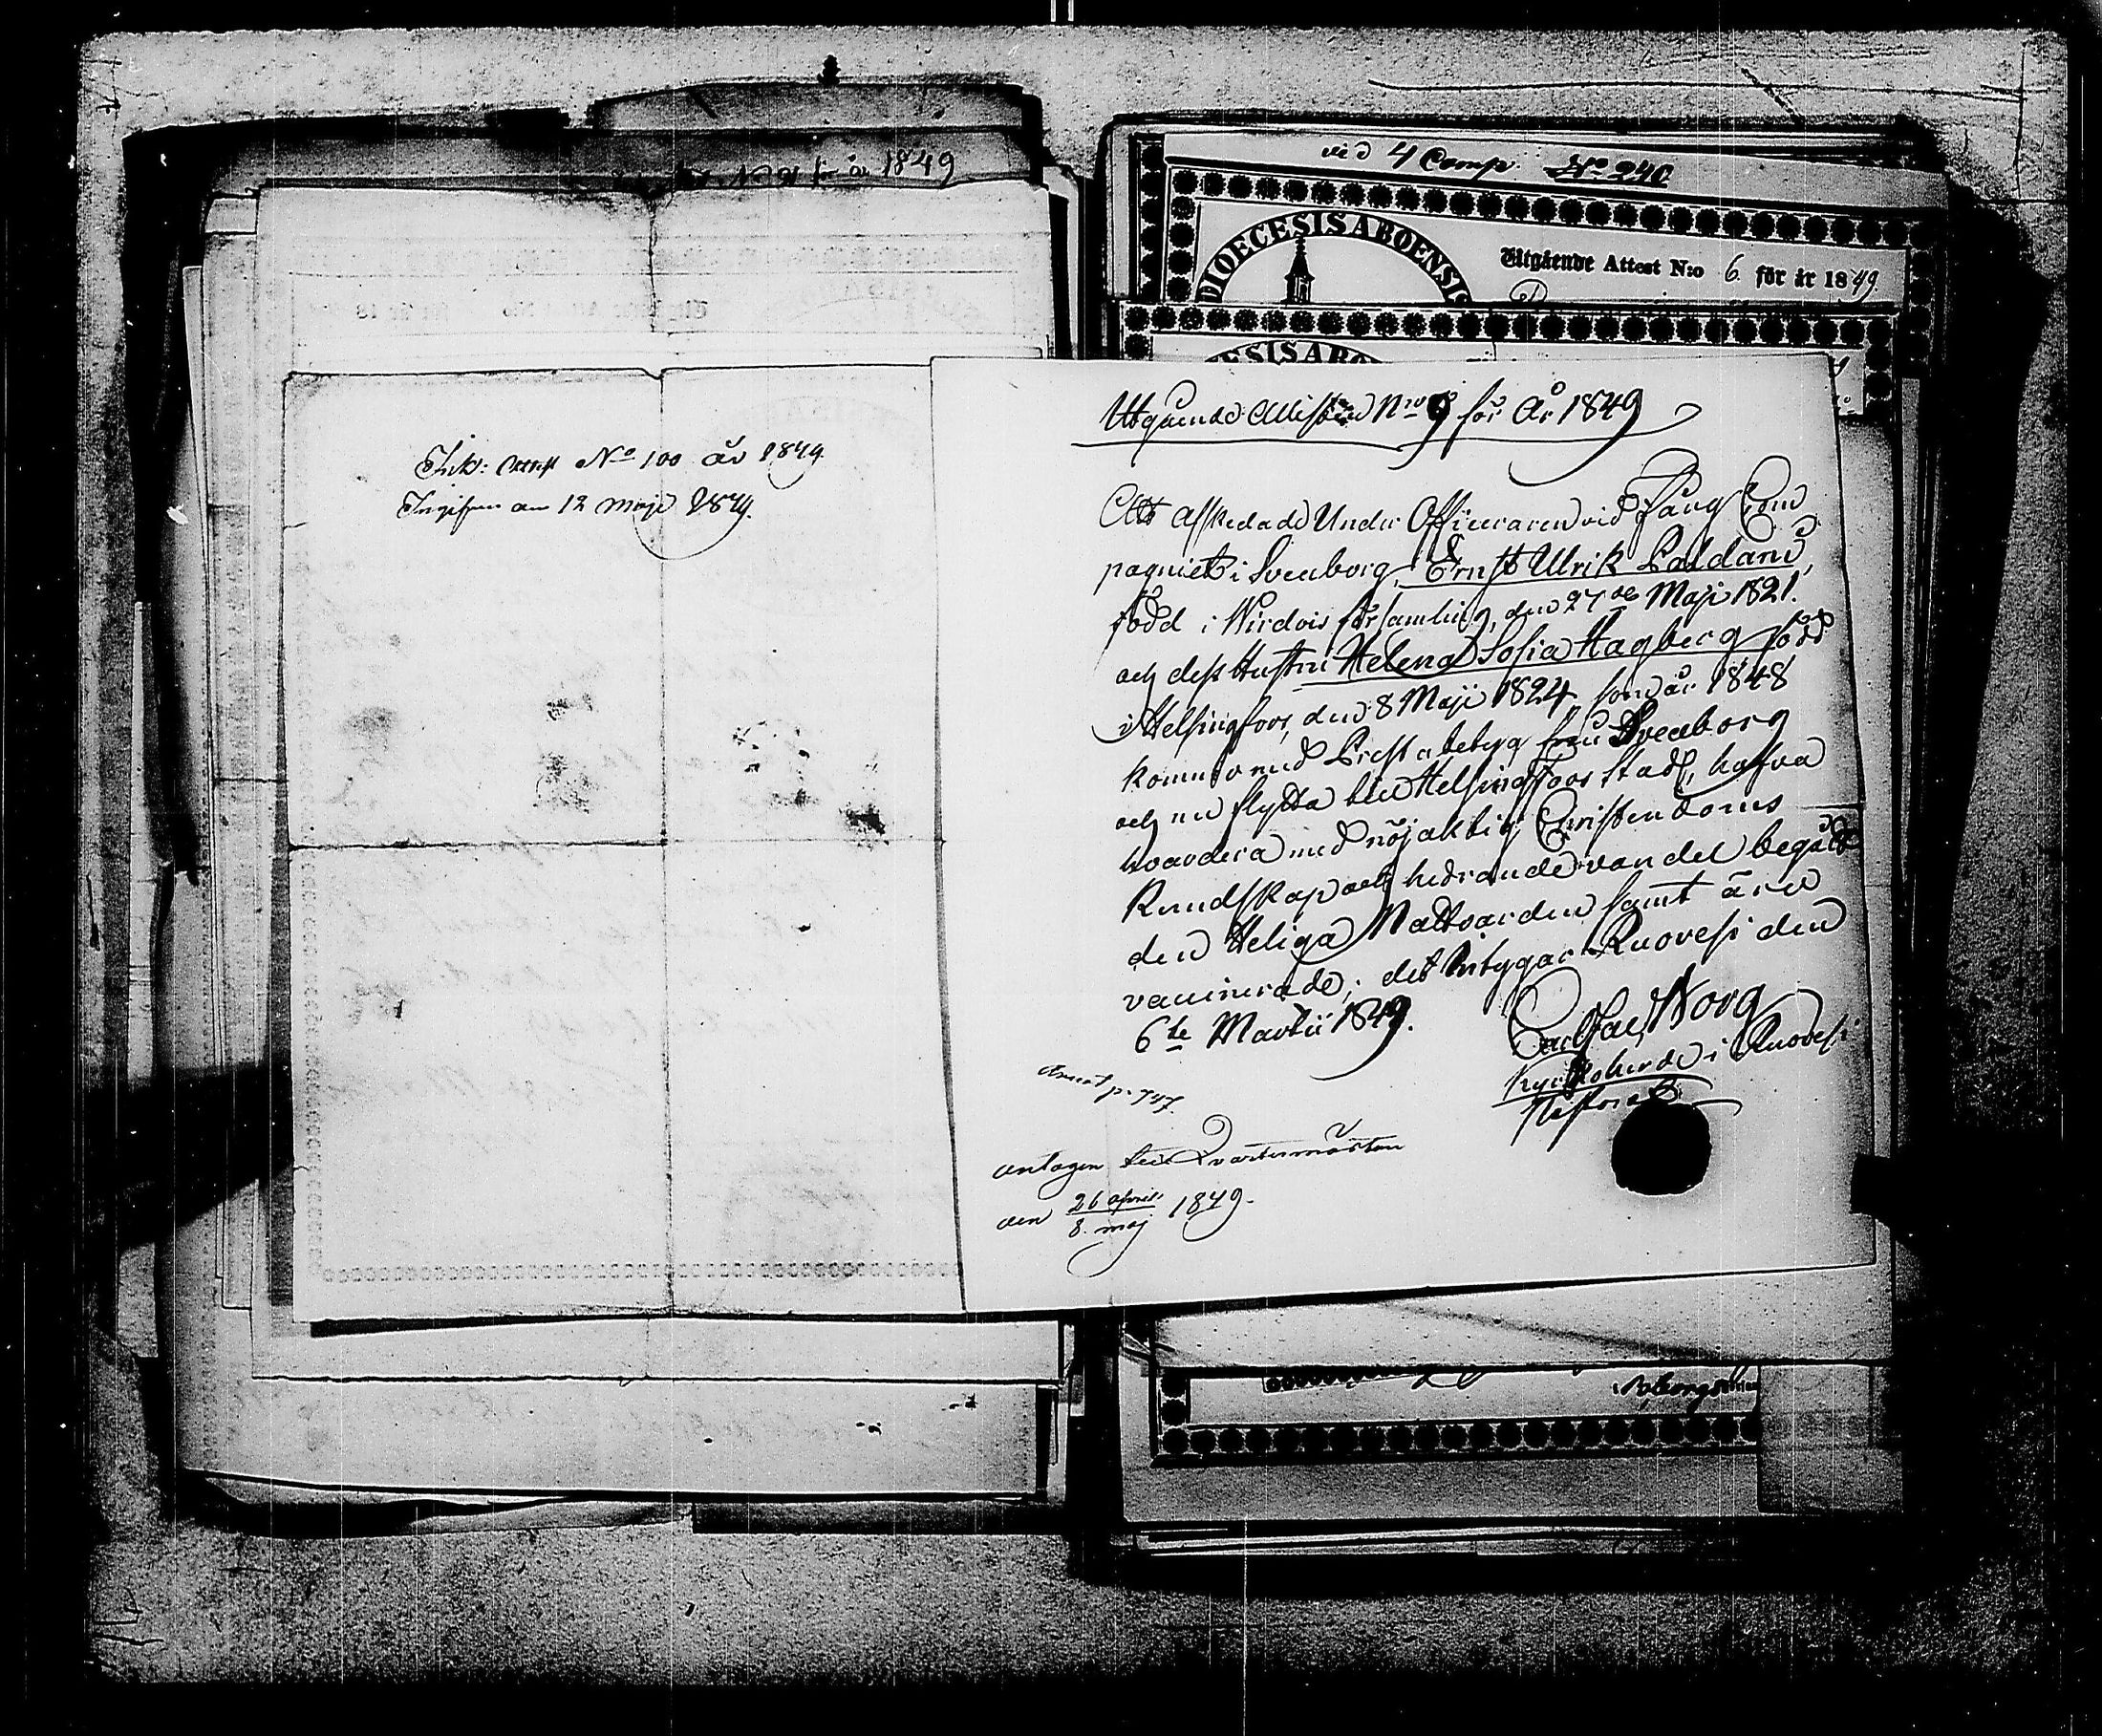 N:o 91 för år 1849
Ink: Attest No 100 år 1849.
Ingifven den 12 Maji 1849.
vid 4 Comp. No 240
DIOECESIS ABOENSIS
Utgående Attest N:o 6. för år 1849.
Utgående Attesten Nro 9 för År 1849
Att Afskedade Under Officeraren vid Fång Com
pagniet i Sveaborg, Ernst Ulrik Paldani,
född i Wirdois församling, den 27de Maji 1821.
och dess Hustru Helena Sofia Hagberg född
i Helsingfors, den 8 Maji 1824, som år 1848
kommo med Prestabetyg från Sveaborg
och nu flytta till Helsingfors Stad, hafva
hvardera med nöjaktig Christendoms
Kundskap och hedrande vandel begått
den Heliga Nattvarden samt äro
vaccinerade; det intygar Ruovesi den
6te Martii 1849.
Carl Jac. Norg
Kyrkoherde i Ruovesi
Pastorat
Annot p. 747.
antagen till Qvartermästare
den 26 April / 8. maj 1849.